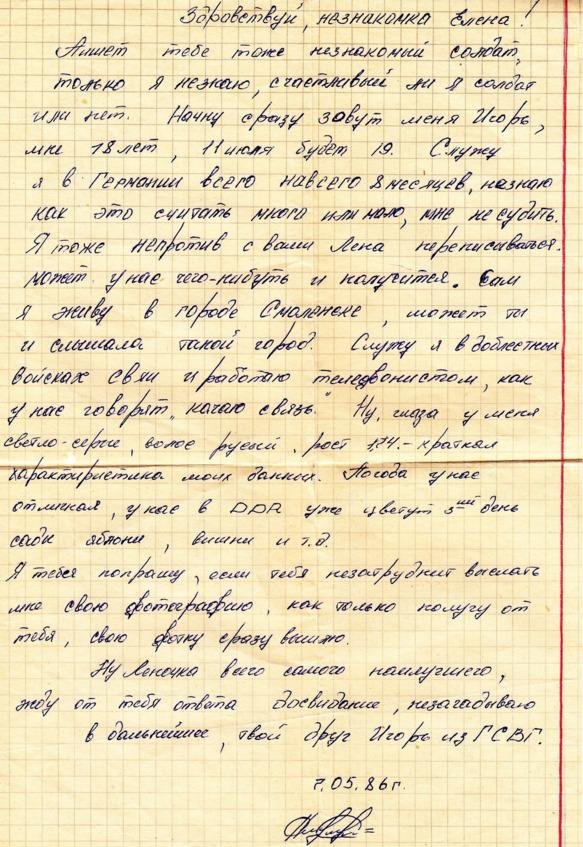 Здравствуй, незнакомка Елена!
Пишет тебе тоже незнакомый солдат,
только я незнаю, счастливый ли я солдат
или нет. Начну сразу зовут меня Игорь,
мне 18 лет, 11 июля будет 19. Служу
я в Германии всего навсего 8 месяцев, незнаю
как это считать много или мало, мне не судить.
Я тоже непротив с вами Лена переписываться.
может у нас чего-нибуть и получится. Сам
я живу в городе Смоленске, может ты
и слышала такой город. Служу я в доблестных
войсках связи и работаю телефонистом, как
у нас говорят „качаю связь." Ну, глаза у меня
светло-серые, волос русый, рост 1,74.- краткая
характиристика моих данных. Погода у нас
отличная, у нас в DDR уже цветут 3ий день
сады яблони, вишни и т.д.
Я тебя попрашу, если тебя незатруднит выслать
мне свою фотографию, как только получу от
тебя, свою фотку сразу вышлю.
Ну Леночка всего самого наилучшего,
жду от тебя ответа Досвидание, незагадываю
в дальнейшее, твой друг Игорь из ГСВГ.
7.05.86г.